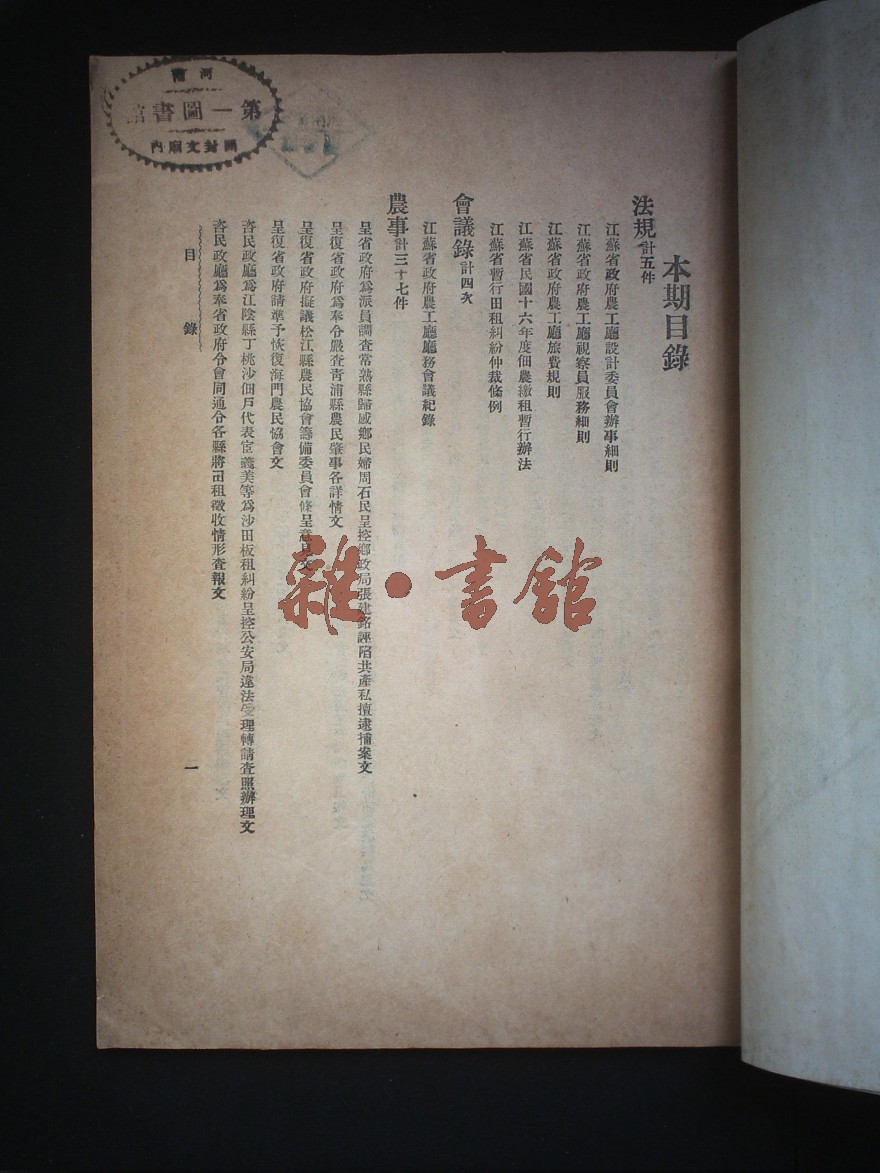 本期目錄
法規計五件
江蘇省政府農工廳設計委員會辦事細則
江蘇省政府農工廳視察員服務細則
江蘇省政府農工廳旅費規則
江蘇省民國十六年度佃農繳租暫行辦法
江蘇省暫行田租糾紛仲裁條例
會議錄計四次
江蘇省政府農工廳廳務會議紀錄
農事計三十七件
呈省政府爲派員調查常熟縣歸感鄉民婦周石民呈控鄉政局張建銘誣陷共產私擅逮捕案文
呈復省政府爲奉令嚴查靑浦縣農民肇事各詳情文
呈復省政府擬議松江縣農民協會籌備委員會條呈意見文
呈復省政府請準予恢復海門農民協會文
咨民政廳爲江陰縣丁桃沙佃戶代表宦義美等爲沙田板租糾紛呈控公安局違法受理轉請查照辦理文
咨民政廳爲奉省政府令會同通令各縣將田租徵收情形查報文
目錄
一
河南
第一圖書館
開封文廟內
雜·書館